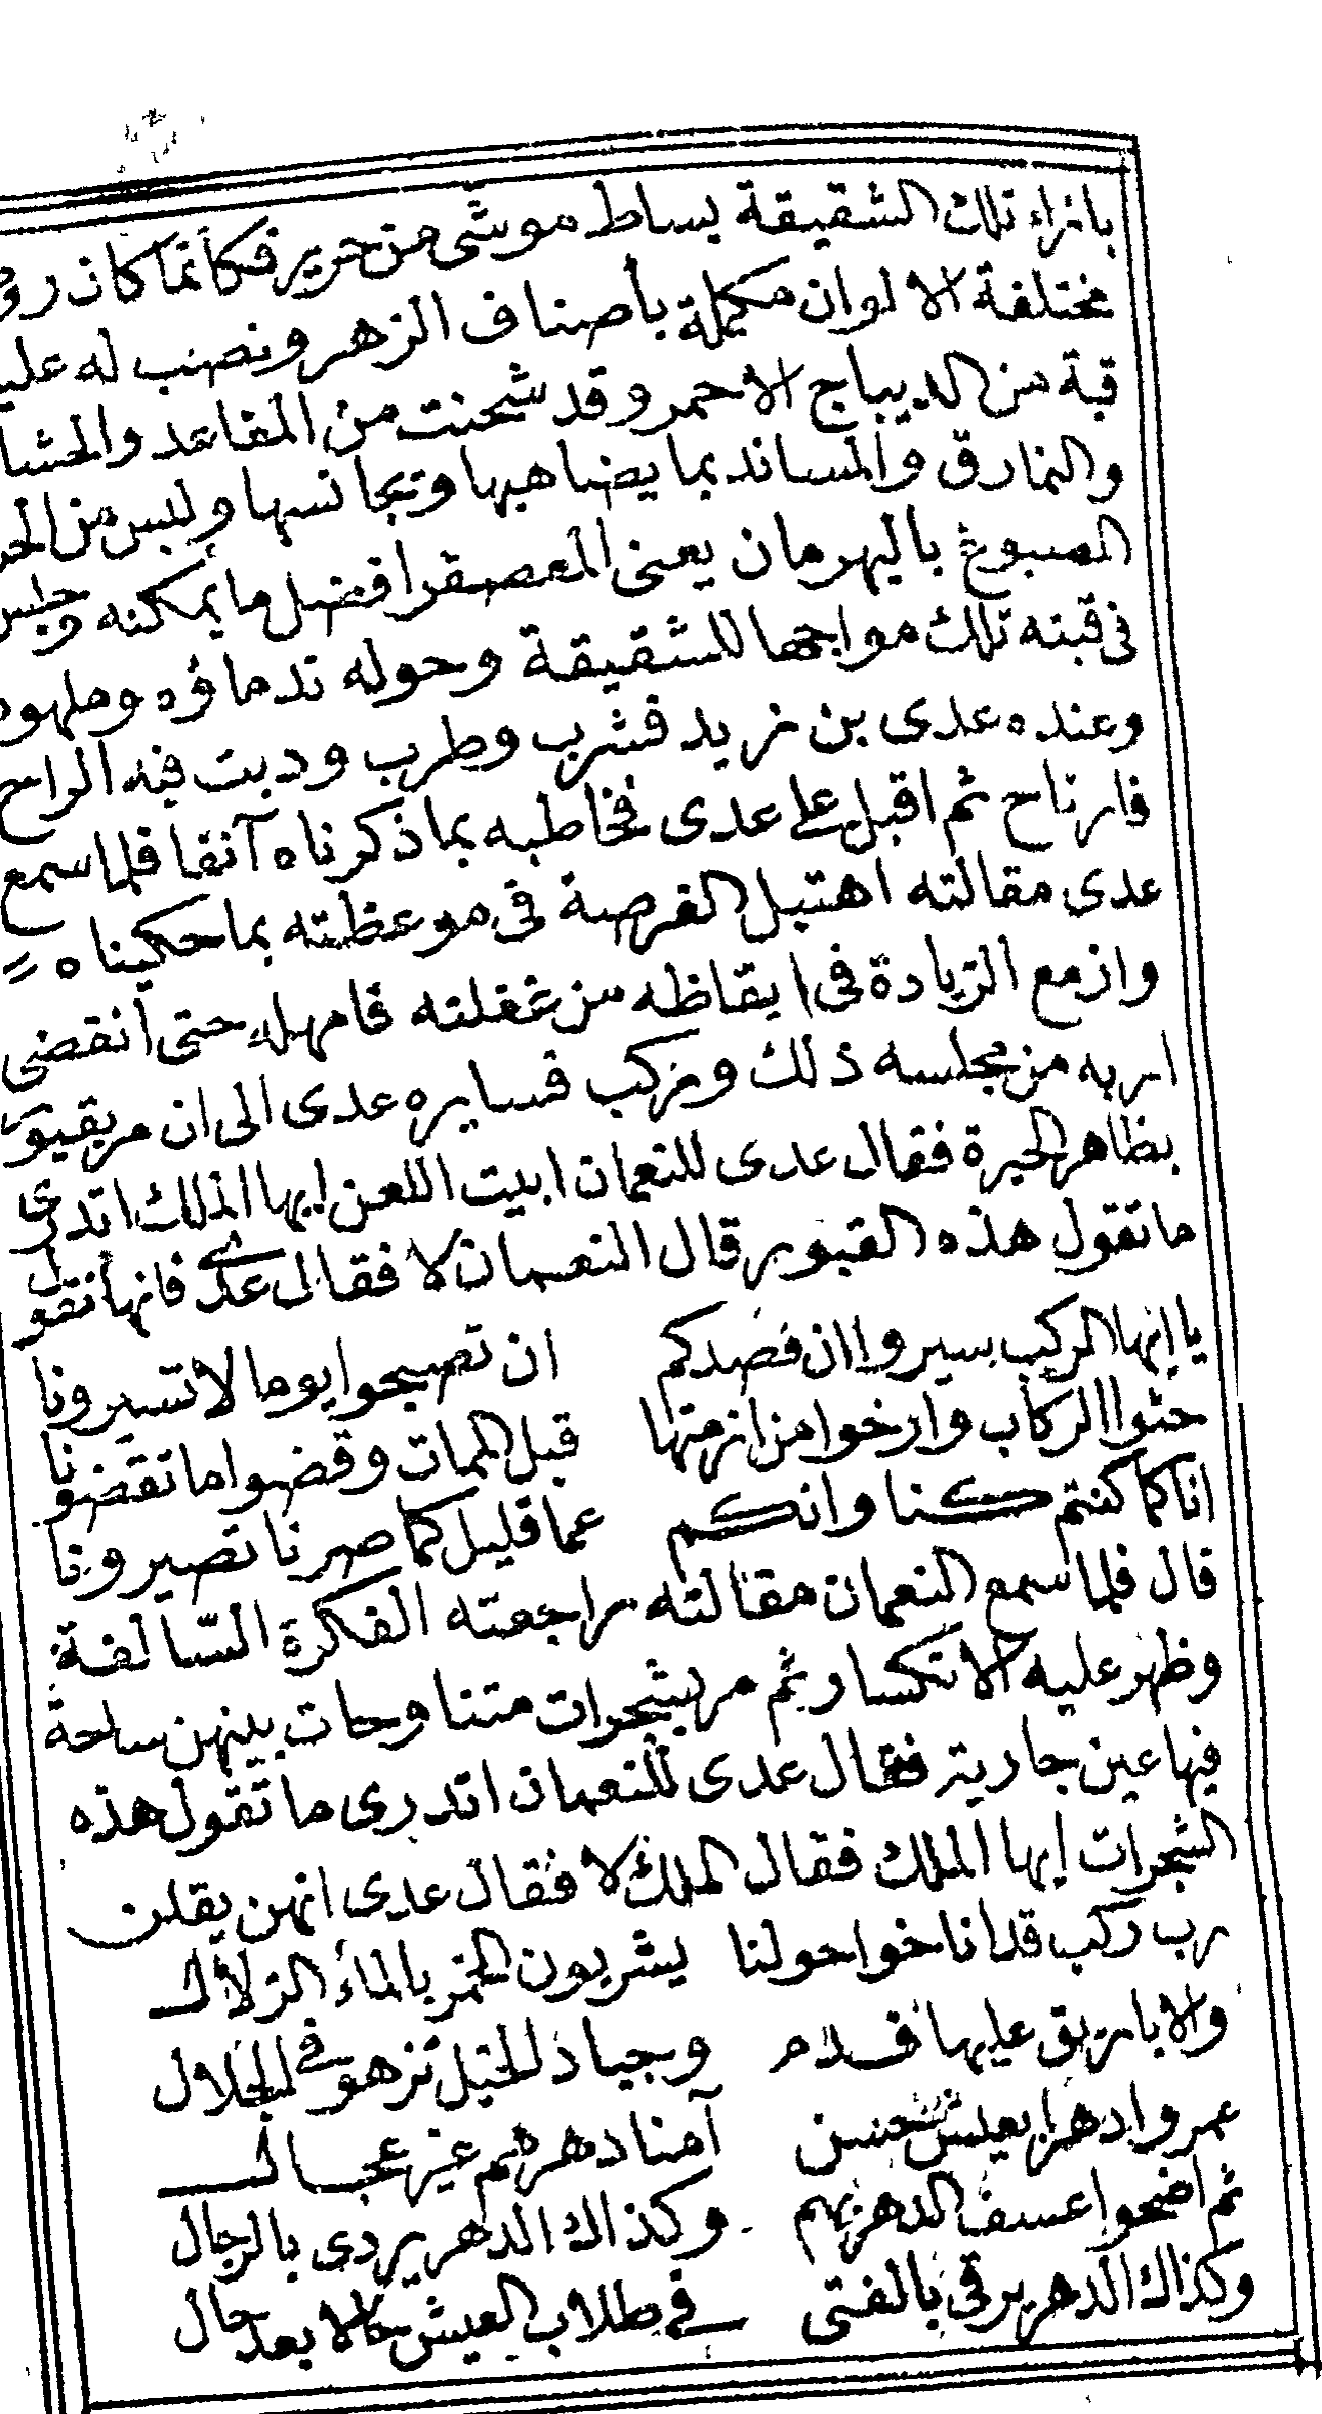 بازاء تلك الشقيقة بساط موشى من حرير فكأنما كان رو
مختلفة الالوان مكملة بأصناف الزهر ونصب له عليه
قبة من الديباج الاحمر وقد شحنت من المقاعد والحشا
والنمارق والمساند بما يضاهيها وتجانسها ولبس من الحر
المصبوغ باليهرمان يعنى المعصفر افضل ما يمكنه وجلس
فى قبته تلك مواجها للشقيقة وحوله ندماؤه وملهوه
وعنده عدى بن زيد فشرب وطرب ودبت فيه الراح
فارتاح ثم اقبل على عدى فخاطبه بما ذكرناه آنفا فلما سمع
عدى مقالته اهتبل الفرصة فى موعظته بما حكيناه
وازمع الزيادة فى ايقاظه من غفلته فامهله حتى انقضى
اربه من مجلسه ذلك وركب فسايره عدى الى ان مر بقبور
بظاهر الحيرة فقال عدى للنعمان ابيت اللعن ايها الملك اتدرى
ما تقول هذه القبور قال النعمان لا فقال عدى فانها تقول
يا ايها الركب سيروا ان قصدكم ان تصبحوا يوما لا تسيرونا
حثوا الركاب وارخوا من ازمتها قبل الممات وقضوا ما تقضونا
انا كما كنتم كنا وانكم عما قليل كما صرنا تصيرونا
قال فلما سمع النعمان مقالته راجعته الفكرة السالفة
وظهر عليه الانكسار ثم مر بشجرات متناوحات بينهن ساحة
فيها عين جارية فقال عدى للنعمان اتدرى ما تقول هذه
الشجرات ايها الملك فقال الملك لا فقال عدى انهن يقلن
رب ركب قد اناخوا حولنا يشربون الخمر بالماء الزلال
والاباريق عليها فدم وجياد الخيل تزهو فى الجلال
عمروا دهرا بعيش حسن آمنا دهرهم غير عجال
ثم اضحوا عسف الدهر بهم وكذاك الدهر يردى بالرجال
وكذاك الدهر يرقى بالفتى فى طلاب العيش حالا بعد حال